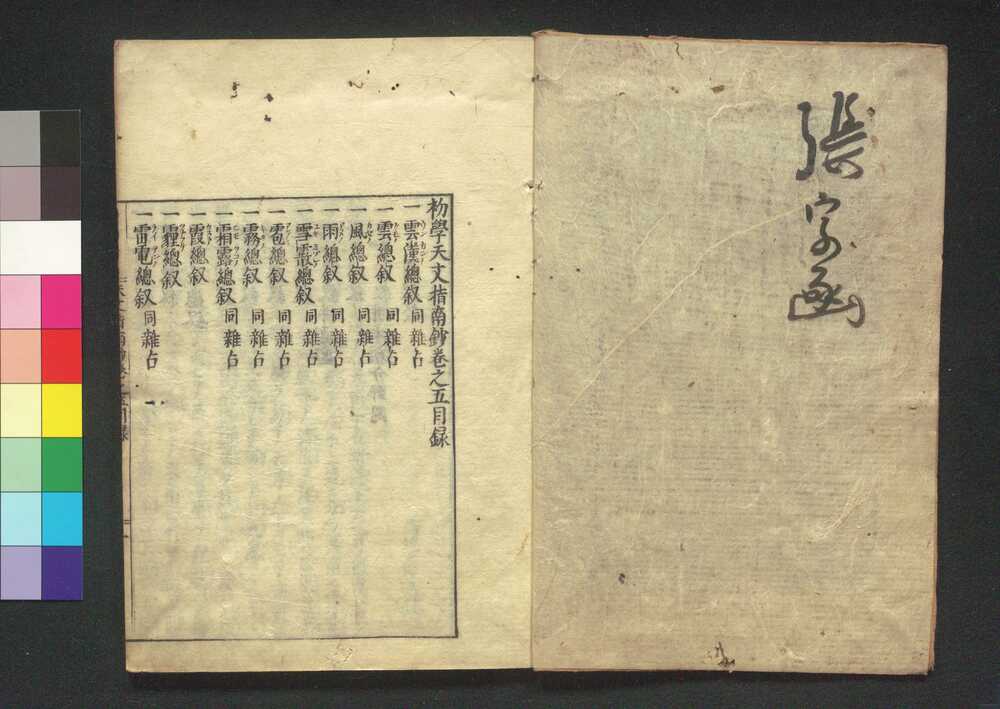 張字函
初學天文指南鈔卷之五目録
一 雲漢總叙 同雜占
一 雲總叙 同雜占
一 風總叙 同雜占
一 雨總叙 同雜占
一 雪霰總叙 同雜占
一 雹總叙 同雜占
一 霧總叙 同雜占
一 霜露總叙 同雜占
一 霞總叙
一 霾總叙
一 雷電總叙 同雜占